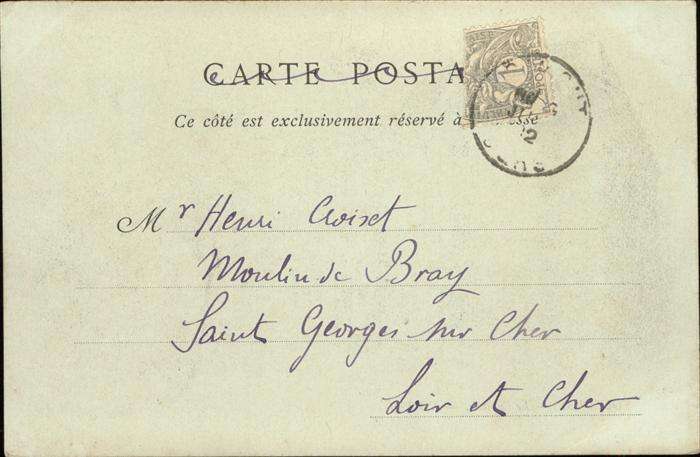 CARTE POSTA
Ce côté est exclusivement réservé à esse
1
Mr Henri Croiset
Moulin de Bray
Saint Georges sur Cher
Loir et Cher